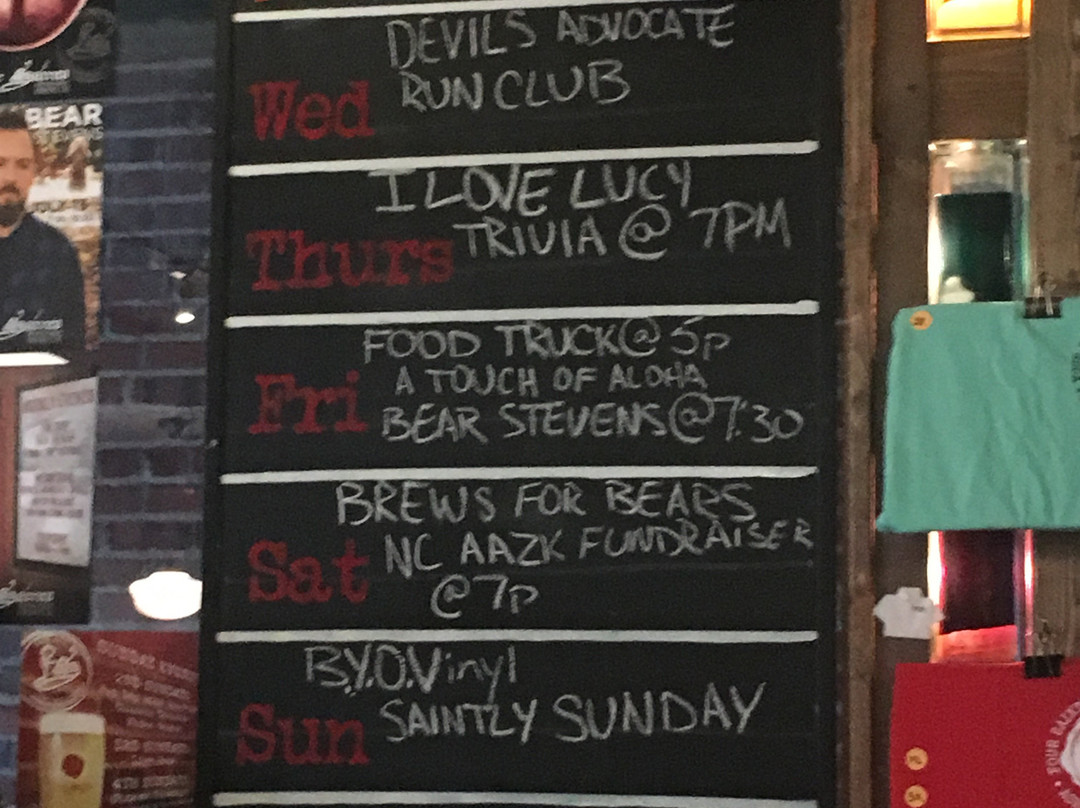 DEVILS ADVOCATE
RUN CLUB
Wed
I LOVE LUCY
TRIVIA @ 7PM
Thurs
FOOD TRUCK@ 5p
A TOUCH OF ALOHA
BEAR STEVENS@7:30
Fri
BREWS FOR BEARS
NC AAZK FUNDRAISER
@7p
Sat
B.Y.O.Vinyl
SAINTLY SUNDAY
Sun
BEAR
STEVENS